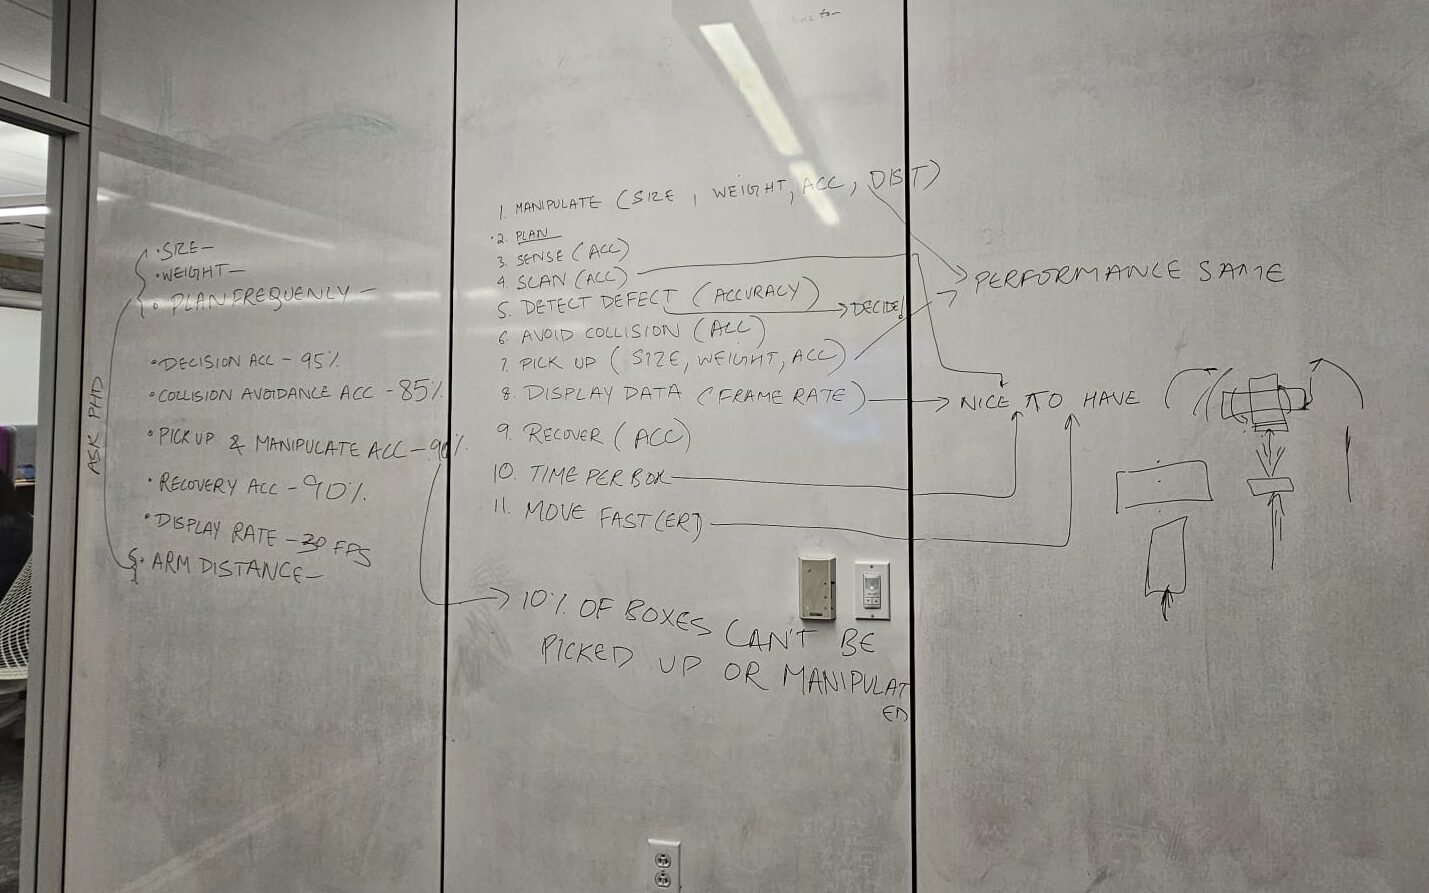 ASK PHD
• SIZE –
• WEIGHT –
• PLAN FREQUENCY –
• DECISION ACC - 95%
• COLLISION AVOIDANCE ACC - 85%
• PICK UP & MANIPULATE ACC - 90%
• RECOVERY ACC - 90%
• DISPLAY RATE - 30 FPS
• ARM DISTANCE –
1. MANIPULATE (SIZE, WEIGHT, ACC, DIST)
2. PLAN
3. SENSE (ACC)
4. SCAN (ACC)
5. DETECT DEFECT (ACCURACY) → DECIDE!
6. AVOID COLLISION (ACC)
7. PICK UP (SIZE, WEIGHT, ACC)
8. DISPLAY DATA (FRAME RATE)
9. RECOVER (ACC)
10. TIME PER BOX
11. MOVE FAST(ER)
→ 10% OF BOXES CAN'T BE
PICKED UP OR MANIPULAT
ED
PERFORMANCE SAME
NICE TO HAVE